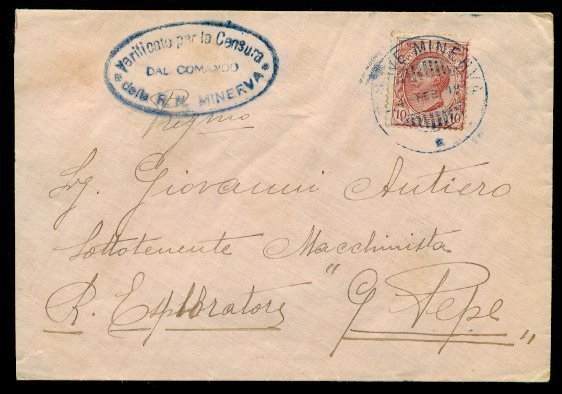 Verificato per la Censura
DAL COMANDO
della R. N. MINERVA
NAVE MINERVA
FEB
10 10
Pregmo
Sg. Giovanni Autiero
Sottotenente Macchinista
R. Esploratore "G. Pepe"